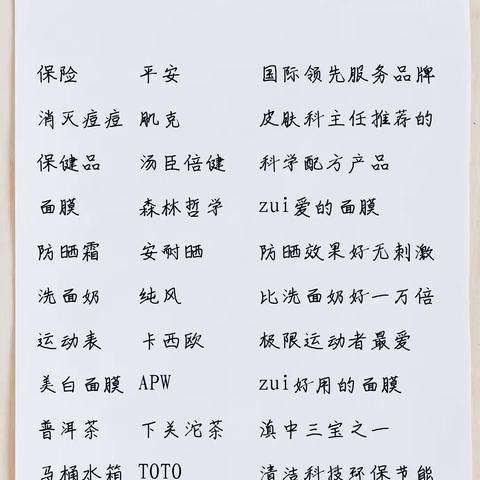 保险 平安 国际领先服务品牌
消灭痘痘 肌克 皮肤科主任推荐的
保健品 汤臣倍健 科学配方产品
面膜 森林哲学 zui爱的面膜
防晒霜 安耐晒 防晒效果好无刺激
洗面奶 纯风 比洗面奶好一万倍
运动表 卡西欧 极限运动者最爱
美白面膜 APW zui好用的面膜
普洱茶 下关沱茶 滇中三宝之一
马桶水箱 TOTO 清洁科技环保节能